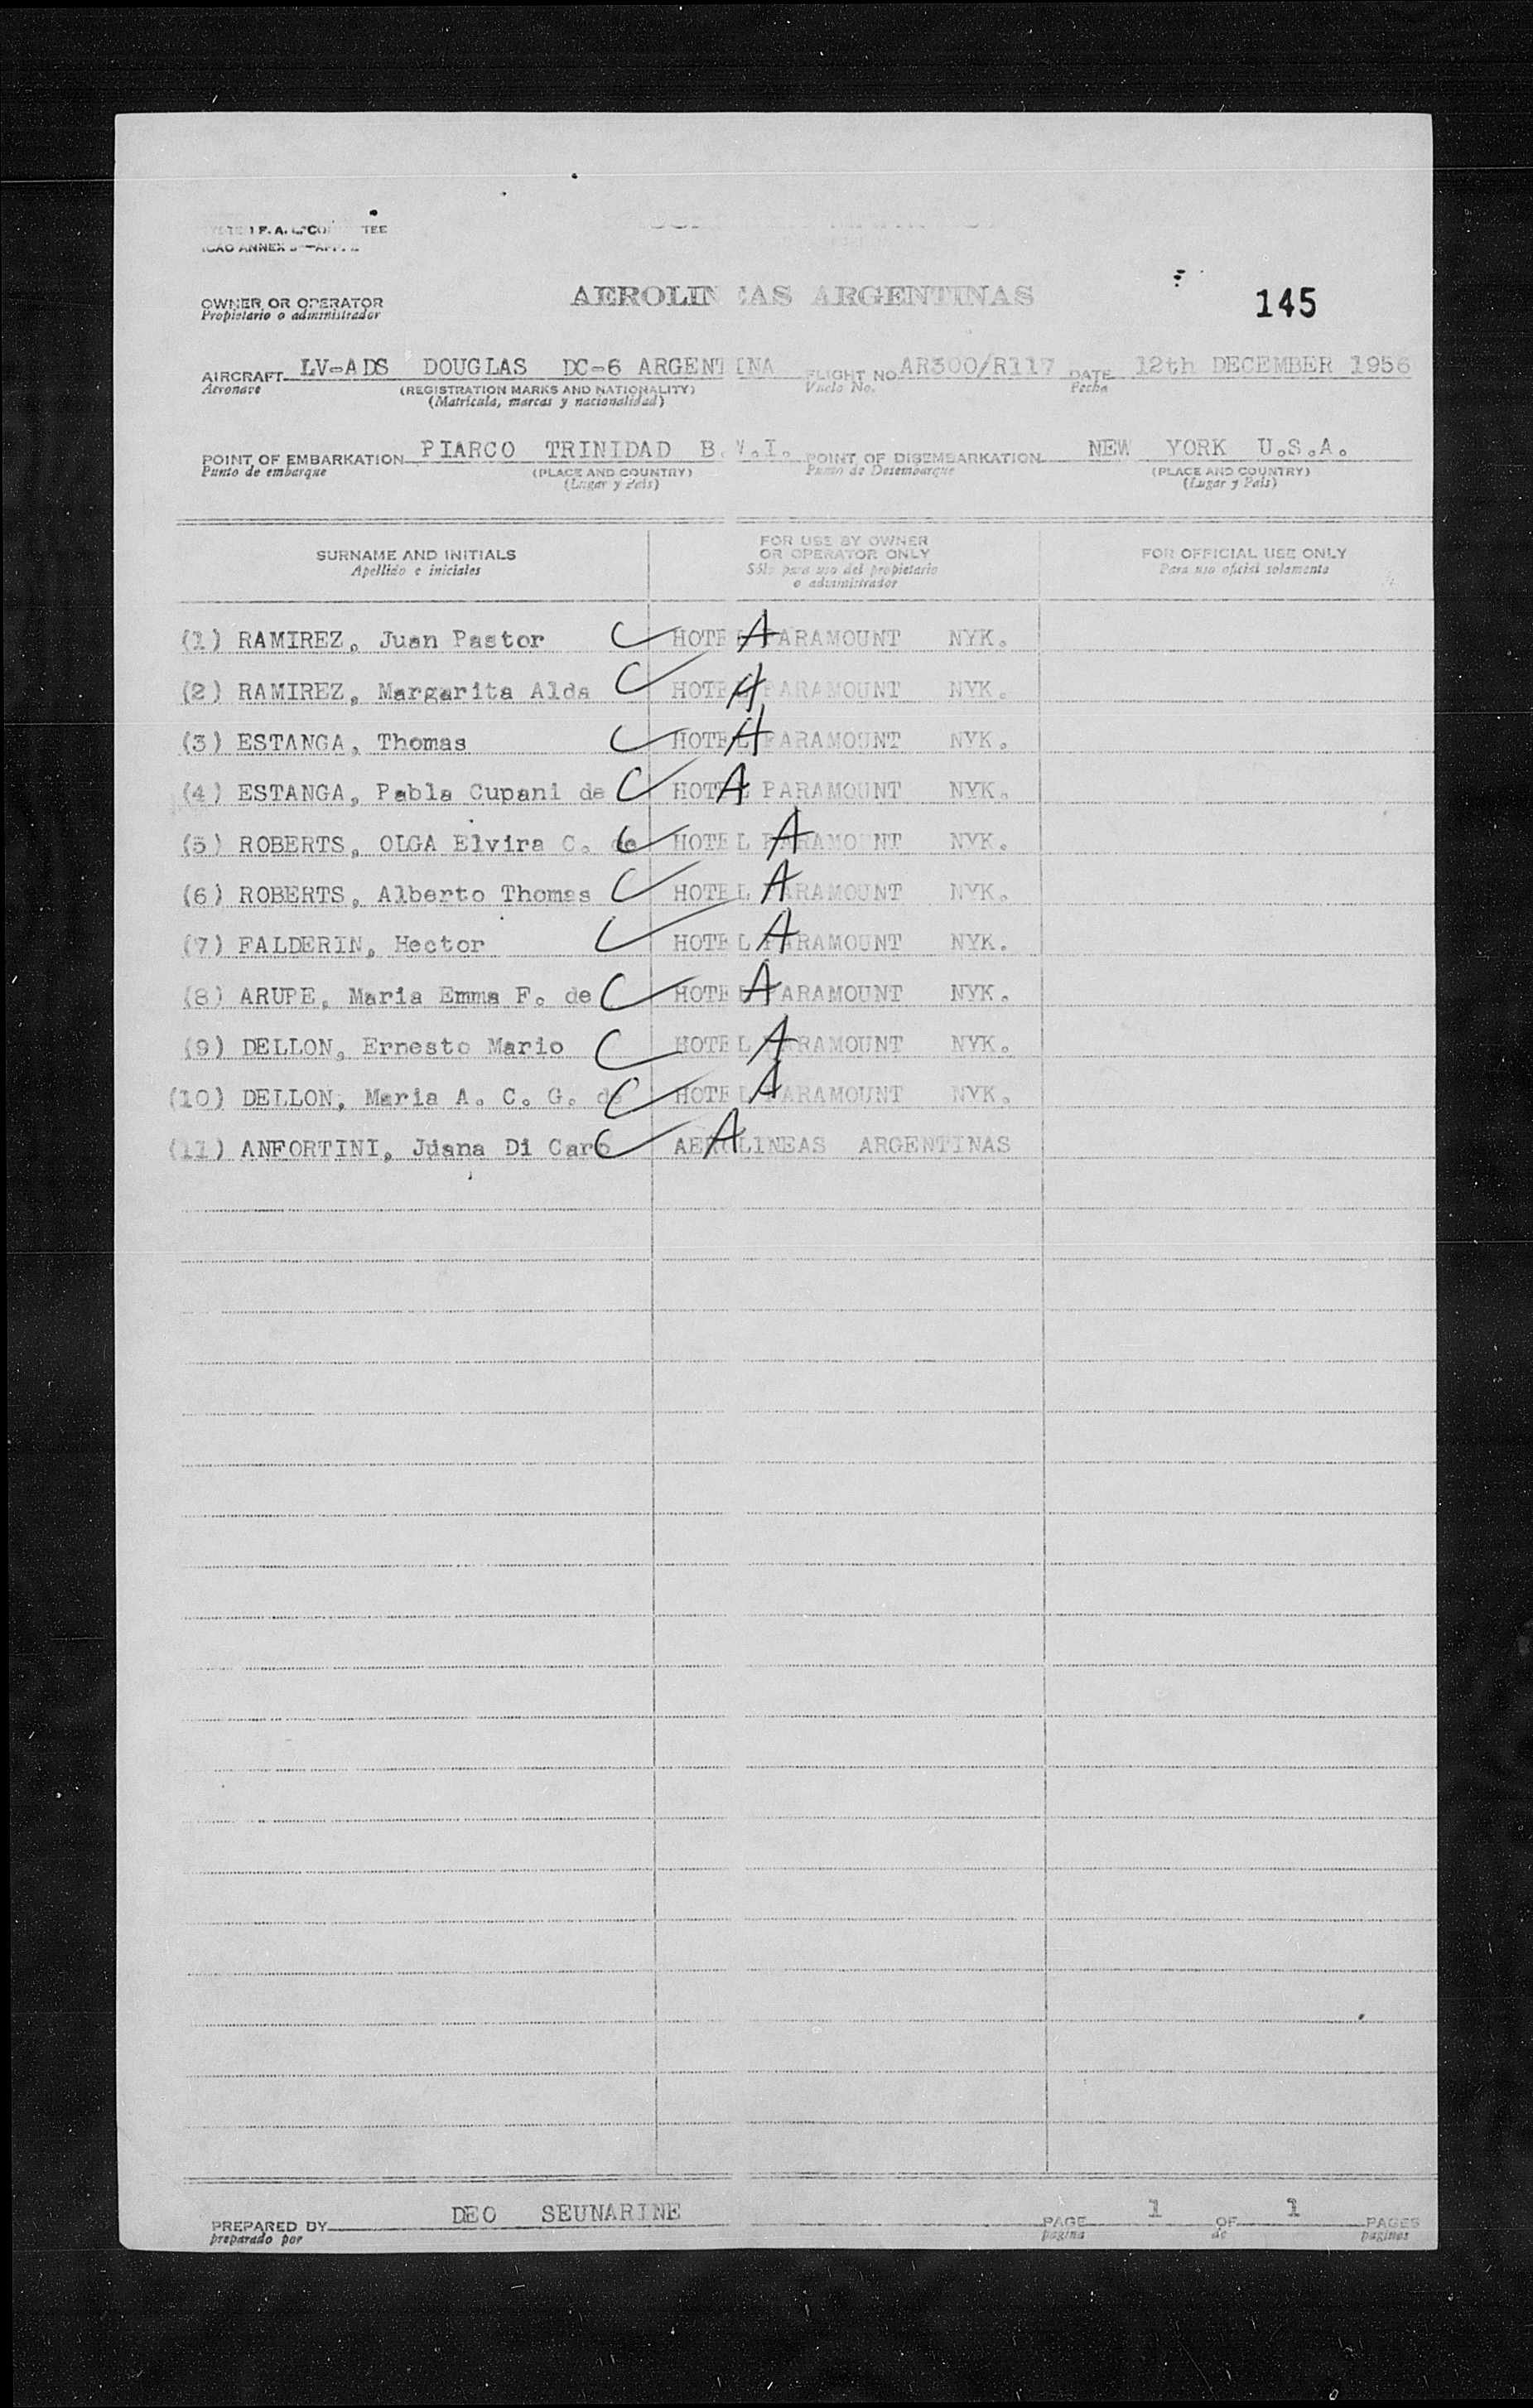 F. A. L. CO TEE
ICAO ANNEX
OWNER OR OPERATOR
Propietario o administrador
AEROLINEAS ARGENTINAS
145
AIRCRAFT LV-ADS DOUGLAS DC-6 ARGENTINA FLIGHT NO. AR300/R117 DATE 12th DECEMBER 1956
Aeronave (REGISTRATION MARKS AND NATIONALITY) Vuelo No. Fecha
(Matricula, marcas y nacionalidad)
POINT OF EMBARKATION PIARCO TRINIDAD B.W.I. POINT OF DISEMBARKATION NEW YORK U.S.A.
Punto de embarque (PLACE AND COUNTRY) Punto de Desembarque (PLACE AND COUNTRY)
(Lugar y País) (Lugar y País)
SURNAME AND INITIALS
Apellido e iniciales
FOR USE BY OWNER
OR OPERATOR ONLY
Sólo para uso del propietario
o administrador
FOR OFFICIAL USE ONLY
Para uso oficial solamente
(1) RAMIREZ, Juan Pastor HOTEL PARAMOUNT NYK. A
(2) RAMIREZ, Margarita Alda HOTEL PARAMOUNT NYK. A
(3) ESTANGA, Thomas HOTEL PARAMOUNT NYK. A
(4) ESTANGA, Pabla Cupani de HOTEL PARAMOUNT NYK. A
(5) ROBERTS, OLGA Elvira C. de HOTEL PARAMOUNT NYK. A
(6) ROBERTS, Alberto Thomas HOTEL PARAMOUNT NYK. A
(7) FALDERIN, Hector HOTEL PARAMOUNT NYK. A
(8) ARUPE, Maria Emma F. de HOTEL PARAMOUNT NYK. A
(9) DELLON, Ernesto Mario HOTEL PARAMOUNT NYK. A
(10) DELLON, Maria A. C. G. de HOTEL PARAMOUNT NYK. A
(11) ANFORTINI, Juana Di Caro AEROLINEAS ARGENTINAS A
PREPARED BY DEO SEUNARINE PAGE 1 OF 1 PAGES
preparado por pagina de paginas